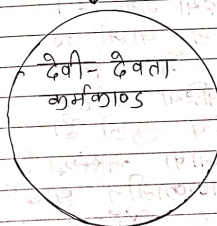 देवी- देवता
कर्मकाण्ड